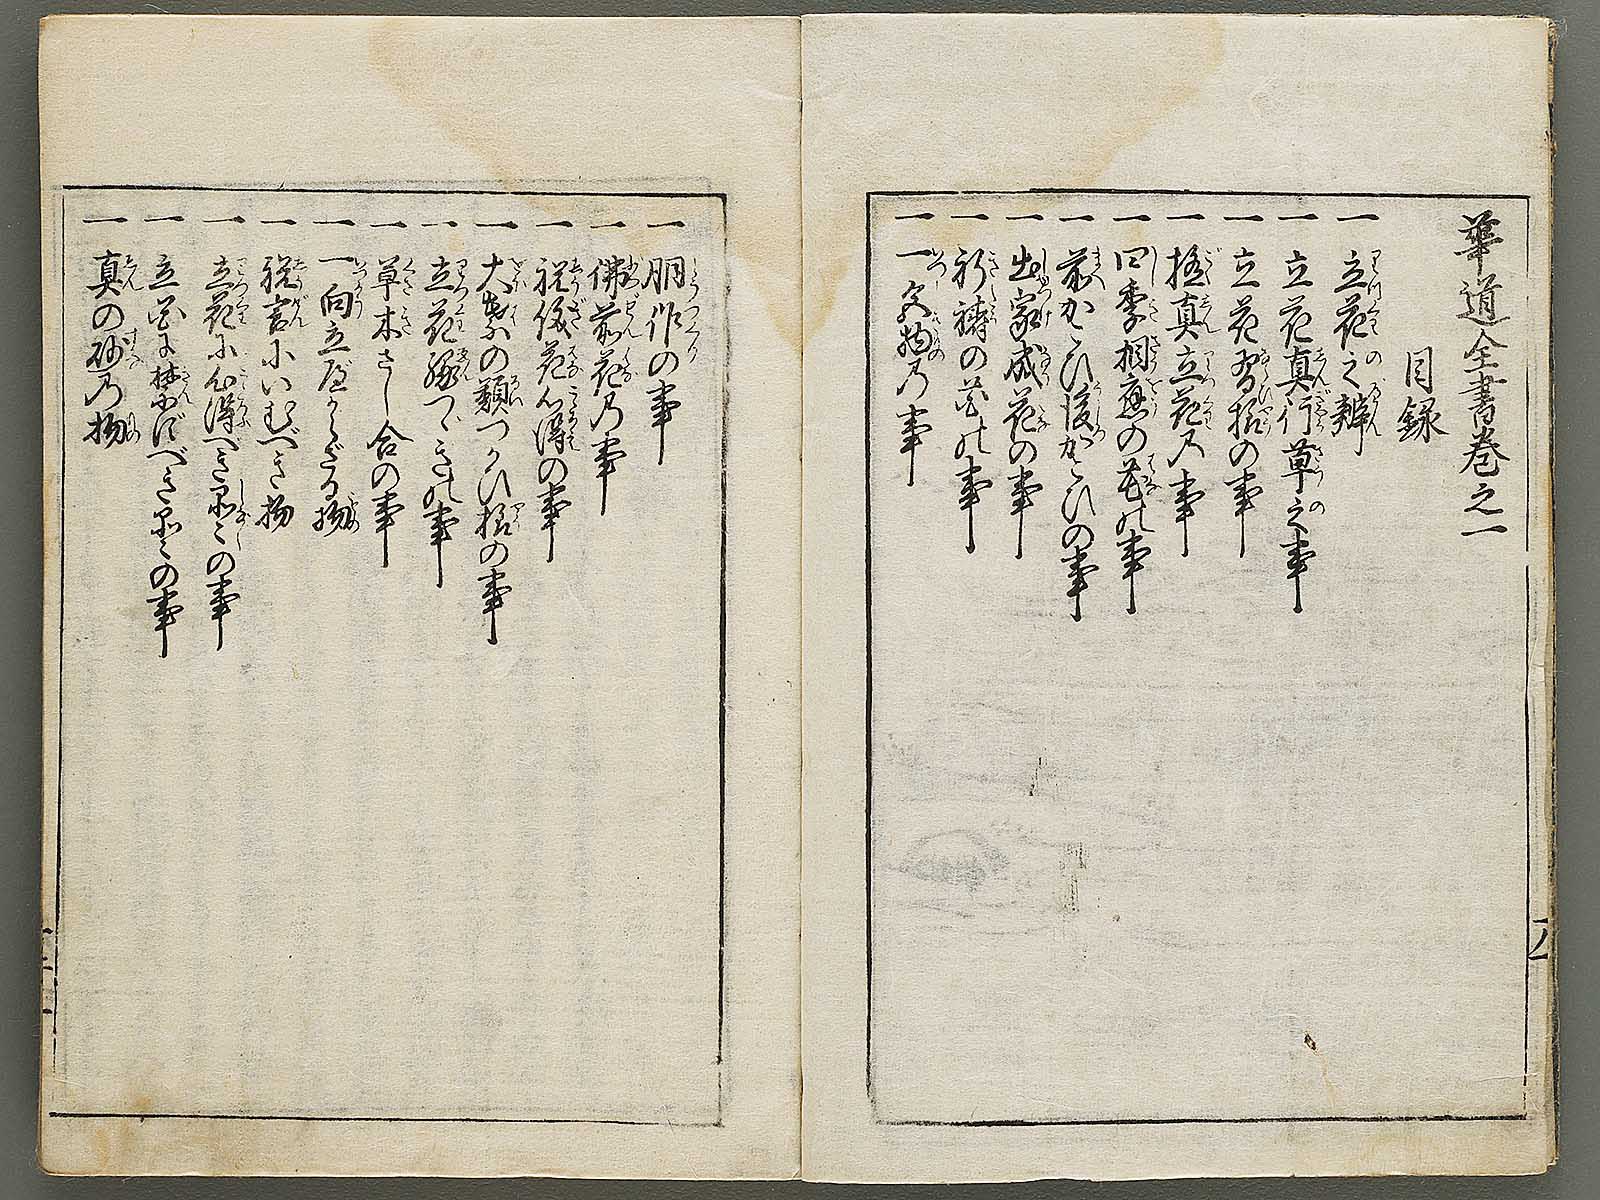 華道全書巻之一
目録
一 立花之辨
一 立花真行草之事
一 立花習揃の事
一 立花の事
一 四季相應の花の事
一 前かこひ後かこひの事
一 出家成花の事
一 祈祷の花の事
一 一色物乃事
一 胴作の事
一 佛前花乃事
一 祝儀花心得の事
一 大葉の類つかひ様の事
一 立花つゞきの事
一 草木さし合の事
一 一向立ざる物
一 祝言にいむべき物
一 立花に心得べき品々の事
一 立花に禁ずべき品々の事
一 真の砂乃物